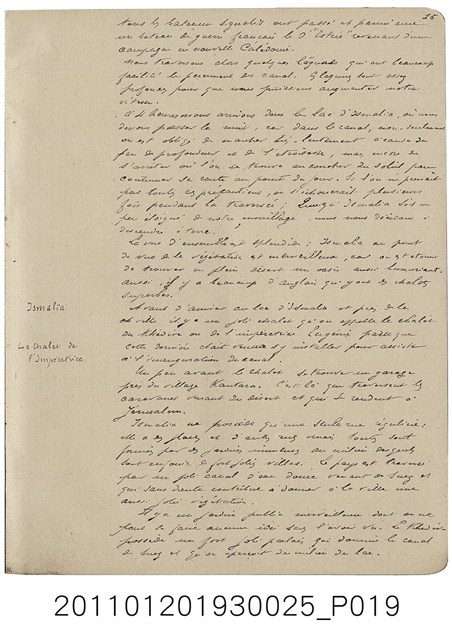 25
tous les bateaux signalés ont passé et parmi eux
un bateau de guerre français le d'Estrée revenant d'une
campagne en nouvelle Calédonie.
Nous traversons alors quelques lagunes qui ont beaucoup
facilité le percement du canal. Ces lagunes sont assez
profondes pour que nous puissions augmenter notre
vitesse.
A 4 heures nous arrivons dans le lac d'Ismalia, où nous
devons passer la nuit, car dans le canal, non seulement
on est obligé de marcher très lentement à cause du
peu de profondeur et de l'étroitesse, mais encore de
s'arrêter où l'on se trouve au coucher du soleil pour
continuer sa route au point du jour. Si l'on ne prenait
pas toutes ces précautions, on s'échouerait plusieurs
fois pendant la traversée; Quoiqu'Ismalia soit un
peu éloigné de notre mouillage, nous nous décidons à
descendre à terre.
La vue d'ensemble est splendide; Ismalia au point
de vue de la végétation est merveilleux, car on est étonné
de trouver en plein désert un oasis aussi luxuriant.
aussi il y a beaucoup d'anglais qui y ont des chalets
superbes.
Ismalia
Avant d'arriver au lac d'Ismalia et près de la
ville, il y a un joli chalet qu'on appelle le chalet
Le chalet de
l'Impératrice.
du Khédive ou de l'impératrice Eugénie parce que
cette dernière était venue s'y installer pour assister
à l'inauguration du canal.
Un peu avant le chalet se trouve un garage
près du village Kantara. C'est là que traversent les
caravanes venant du désert et qui se rendent à
Jérusalem.
Ismalia ne possède qu'une seule rue régulière;
elle a des places et d'autres rues mais toutes sont
formées par des jardins immenses au milieu desquels
sont enfouies de fort jolies villas. Le pays est traversé
par un joli canal d'eau douce venant de Suez et
qui sans doute contribue à donner à la ville une
aussi jolie végétation.
Il y a un jardin public merveilleux dont on ne
peut se faire aucune idée sans l'avoir vu. Le Khédive
possède un fort joli palais qui domine le canal
de Suez et qu'on aperçoit du milieu du lac.
201101201930025_P019